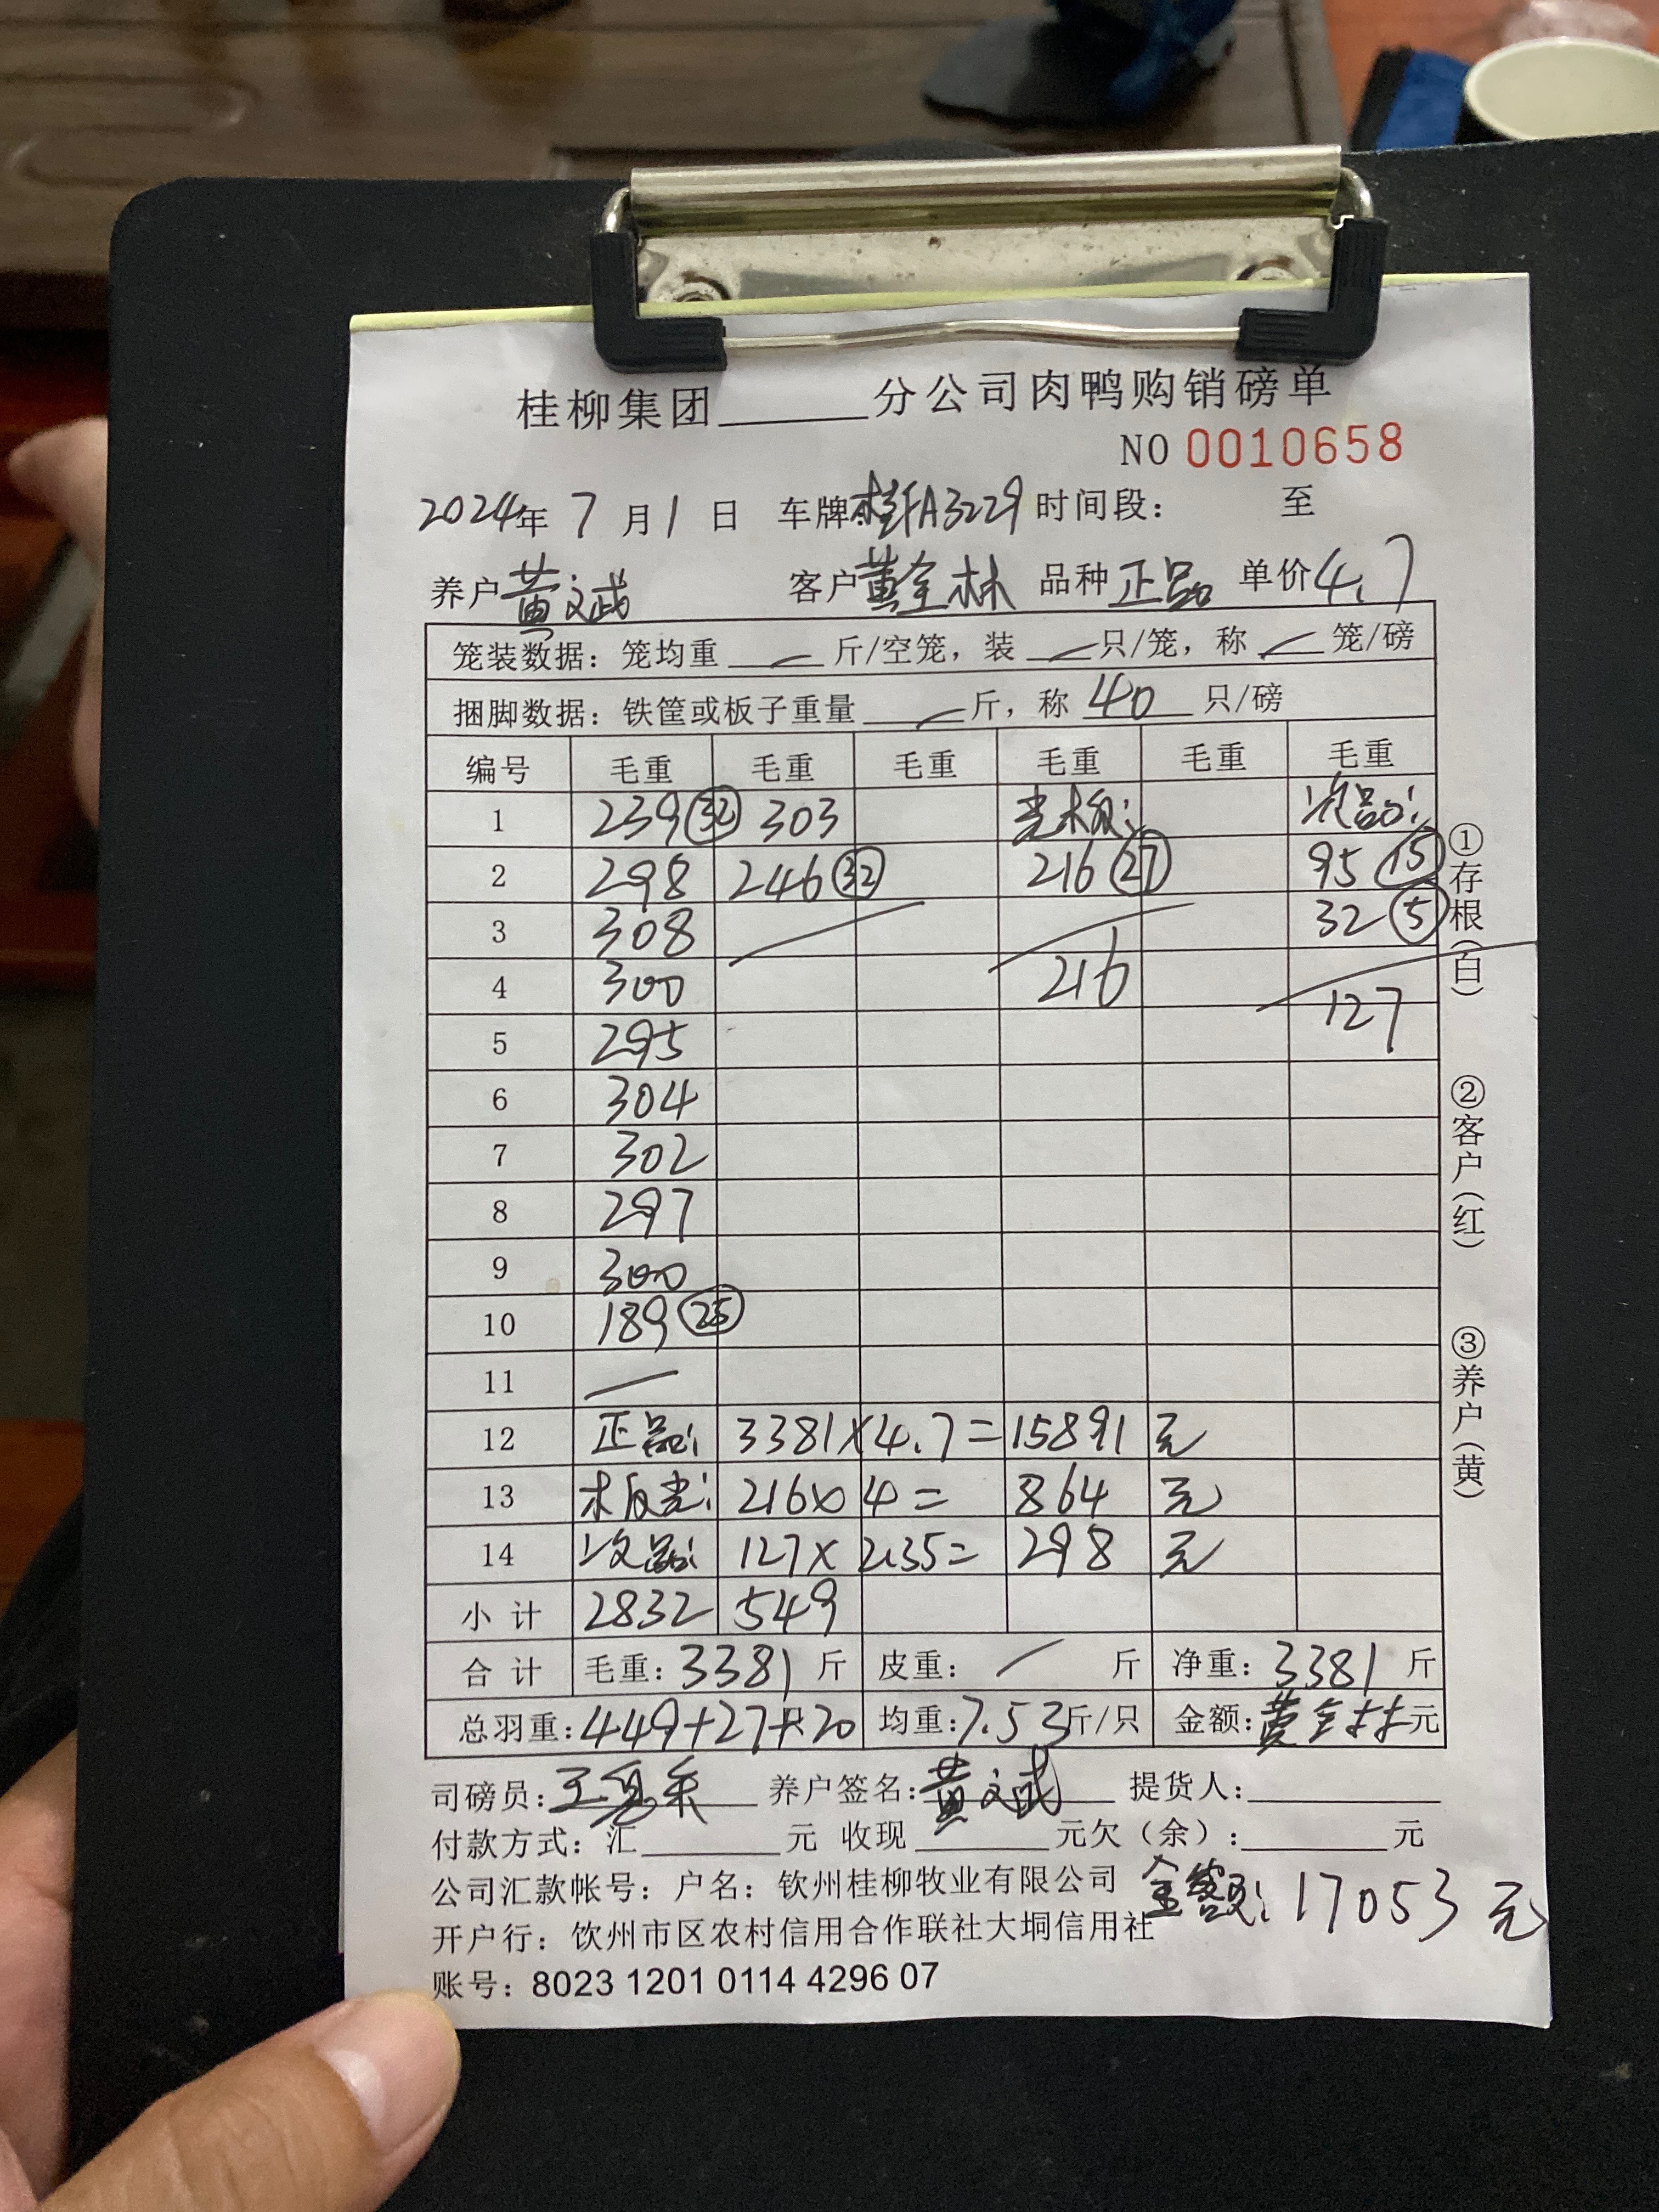 桂柳集团______分公司肉鸭购销磅单
NO 0010658
2024年 7 月 1 日 车牌:桂 A3229 时间段: 至
养户 黄文斌 客户 黄全林 品种 正品 单价 4.7
笼装数据：笼均重 斤/空笼，装 只/笼，称 笼/磅
捆脚数据：铁筐或板子重量 斤，称 40 只/磅
编号 毛重 毛重 毛重 毛重 毛重 毛重
1 239 (32) 303 光板: 次品:
2 298 246 (32) 216 (27) 95 (15)
3 308 32 (5)
4 300 216 127
5 295
6 304
7 302
8 297
9 300
10 189 (25)
11
12 正品: 3381×4.7=15891 元
13 板光: 216×4= 864 元
14 次品: 127×2.35= 298 元
小计 2832 549
合计 毛重: 3381 斤 皮重: 斤 净重: 3381 斤
总羽重: 449+27+20 均重: 7.53 斤/只 金额: 黄全林 元
司磅员: 养户签名: 黄文斌 提货人:
付款方式：汇 元 收现 元欠（余）: 元
公司汇款帐号：户名：钦州桂柳牧业有限公司 金额: 17053 元
开户行：钦州市区农村信用合作联社大垌信用社
账号：8023 1201 0114 4296 07
①存根(白) ②客户(红) ③养户(黄)